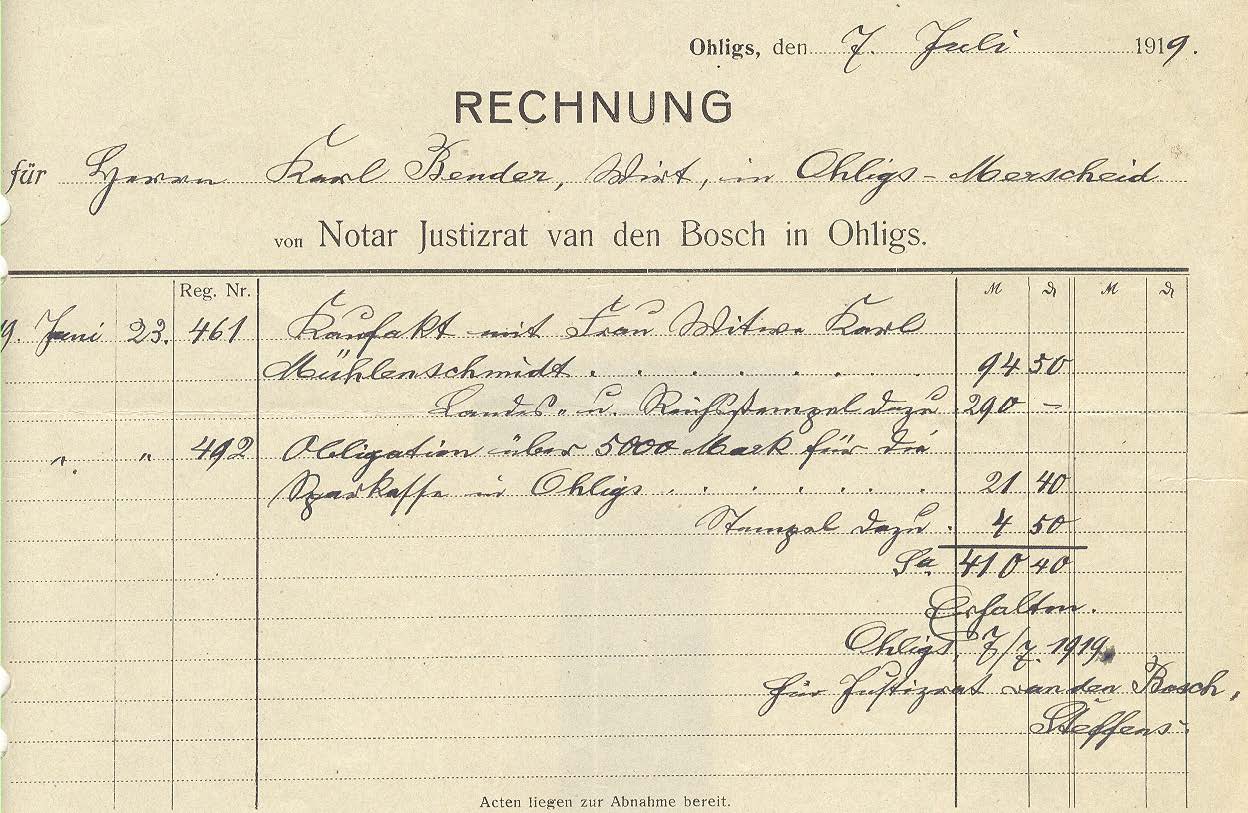 Ohligs, den 7. Juli 1919.
RECHNUNG
für Herrn Karl Bender, Wirt, in Ohligs-Merscheid
von Notar Justizrat van den Bosch in Ohligs.
Reg. Nr. M ₰ M ₰
19. Juni 23. 461 Kaufakt mit Frau Witwe Karl
Mühlenschmidt . . . . . . . 94 50
Landes- u. Reichsstempel dazu 290 –
" " 492 Obligation über 5000 Mark für die
Sparkasse in Ohligs . . . . . . . 21 40
Stempel dazu . 4 50
Sa. 410 40
Erhalten.
Ohligs, 7/7. 1919.
Für Justizrat van den Bosch,
Steffens.
Acten liegen zur Abnahme bereit.